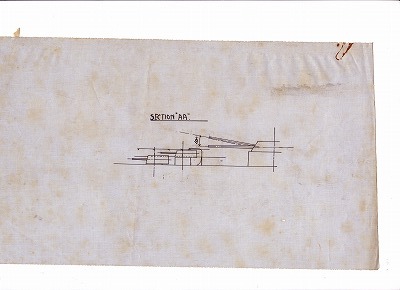 SECTION "AA".